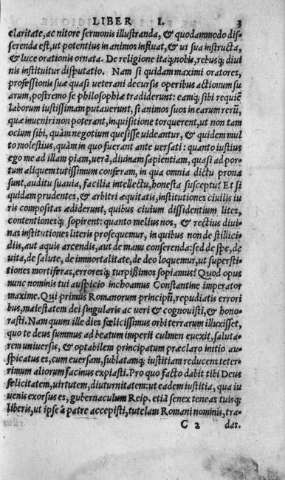 LIBER I. 3
claritate, ac nitore sermonis illustranda, & quodammodo dis-
serenda est, ut potentius in animos influat, & ut sua instructa,
& luce orationis ornata. De religione itaq; nobis, rebusq; diui
nis instituitur disputatio. Nam si quidam maximi oratores,
professionis suæ quasi ueterani decursis operibus actionum su
arum, postremo se philosophiæ tradiderunt: eamq; sibi requiē
laborum iustissimam putauerunt, si animos suos in earum rerū,
quæ inueniri non poterant, inquisitione torquerent, ut non tam
ocium sibi, quàm negotium quæsisse uideantur, & quidem mul
to molestius, quàm in quo fuerant ante uersati: quanto iustius
ego me ad illam piam, uerā, diuinam sapientiam, quasi ad por-
tum aliquem tutissimum conferam, in qua omnia dictu prona
sunt, auditu suauia, facilia intellectu, honesta susceptu? Et si
quidam prudentes, & arbitri æquitatis, institutiones ciuilis iu
ris compositas ædiderunt, quibus ciuium dissidentium lites,
contentionesq; sopirent: quanto melius nos, & rectius diui-
nas institutiones literis prosequemur, in quibus non de stillici-
dijs, aut aquis arcendis, aut de manu conserenda: sed de spe, de
uita, de salute, de immortalitate, de deo loquemur, ut supersti-
tiones mortiferas, erroresq; turpißimos sopiamus? Quod opus
nunc nominis tui auspicio inchoamus Constantine imperator
maxime. Qui primus Romanorum principū, repudiatis errori
bus, maiestatem dei singularis ac ueri & cognouisti, & hono-
rasti. Nam quum ille dies fœlicissimus orbi terrarum illuxisset,
quo te deus summus ad beatum imperij culmen euexit, saluta-
rem uniuersis, & optabilem principatum præclaro initio au-
spicatus es, cum euersam, sublatamq; iustitiam reducens, teter-
rimum aliorum facinus expiasti. Pro quo facto dabit tibi Deus
felicitatem, uirtutem, diuturnitatem: ut eadem iustitia, qua iu
uenis exorsus es, gubernaculum Reip. etiā senex teneas: tuisq;
liberis, ut ipse à patre accepisti, tutelam Romani nominis, tra-
C 2 dat.